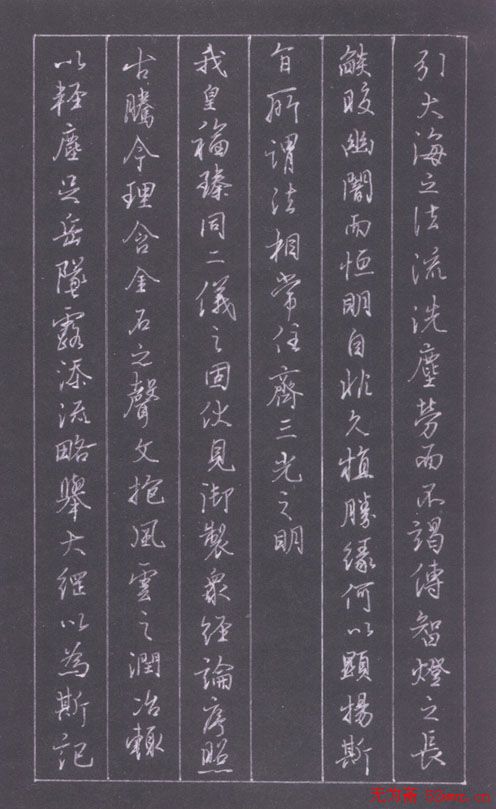 引大海之法流洗塵勞而不竭傳智燈之長
燄皎幽闇而恒明自非久植勝緣何以顯揚斯
旨所謂法相常住齊三光之明
我皇福臻同二儀之固伏見御製衆經論序照
古騰今理含金石之聲文抱風雲之潤治輒
以輕塵足岳墜露添流略舉大綱以為斯記